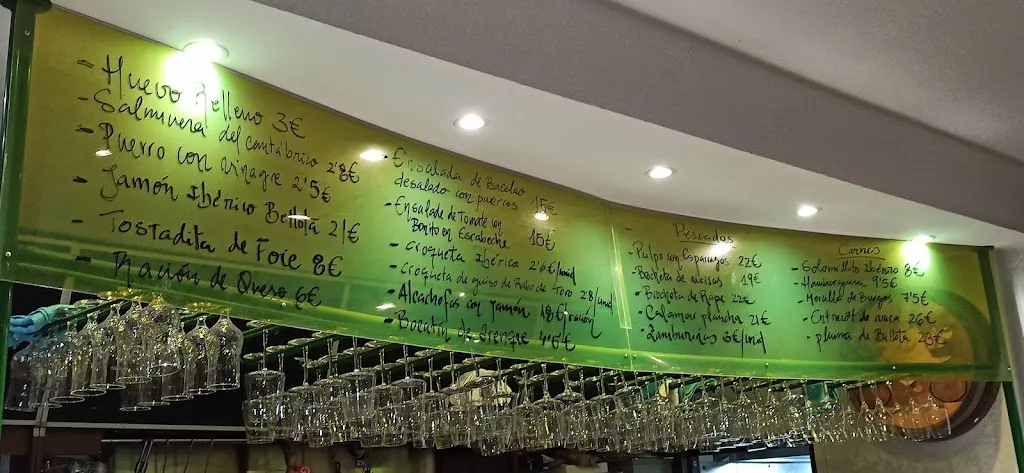 - Huevo Relleno 3€
- Salmuera del cantábrico 2'8€
- Puerro con vinagre 2'5€
- Jamón Ibérico Bellota 21€
- Tostadita de Foie 8€
- Ración de Queso 6€
- Ensalada de Bacalao
desalado con puerros 15€
- Ensalada de Tomate con
Bonito en Escabeche 15€
- croqueta Ibérica 2'6€/unid
- croqueta de guiso de Rabo de Toro 2'8/unid
- Alcachofas con jamón 18€ración
- Bocatín de 4'6€
Pescados
- Pulpo con Esparragos 22€
- Brocheta de 19€
- Brocheta de Rape 22€
- Calamar plancha 21€
- Zamburiñas 3€/unid
Carnes
- Solomillito Ibérico 8€
- Hamburguesa 9'5€
- Morcilla de Burgos 7'5€
- Entrecot de vaca 26€
- pluma de Bellota 23€